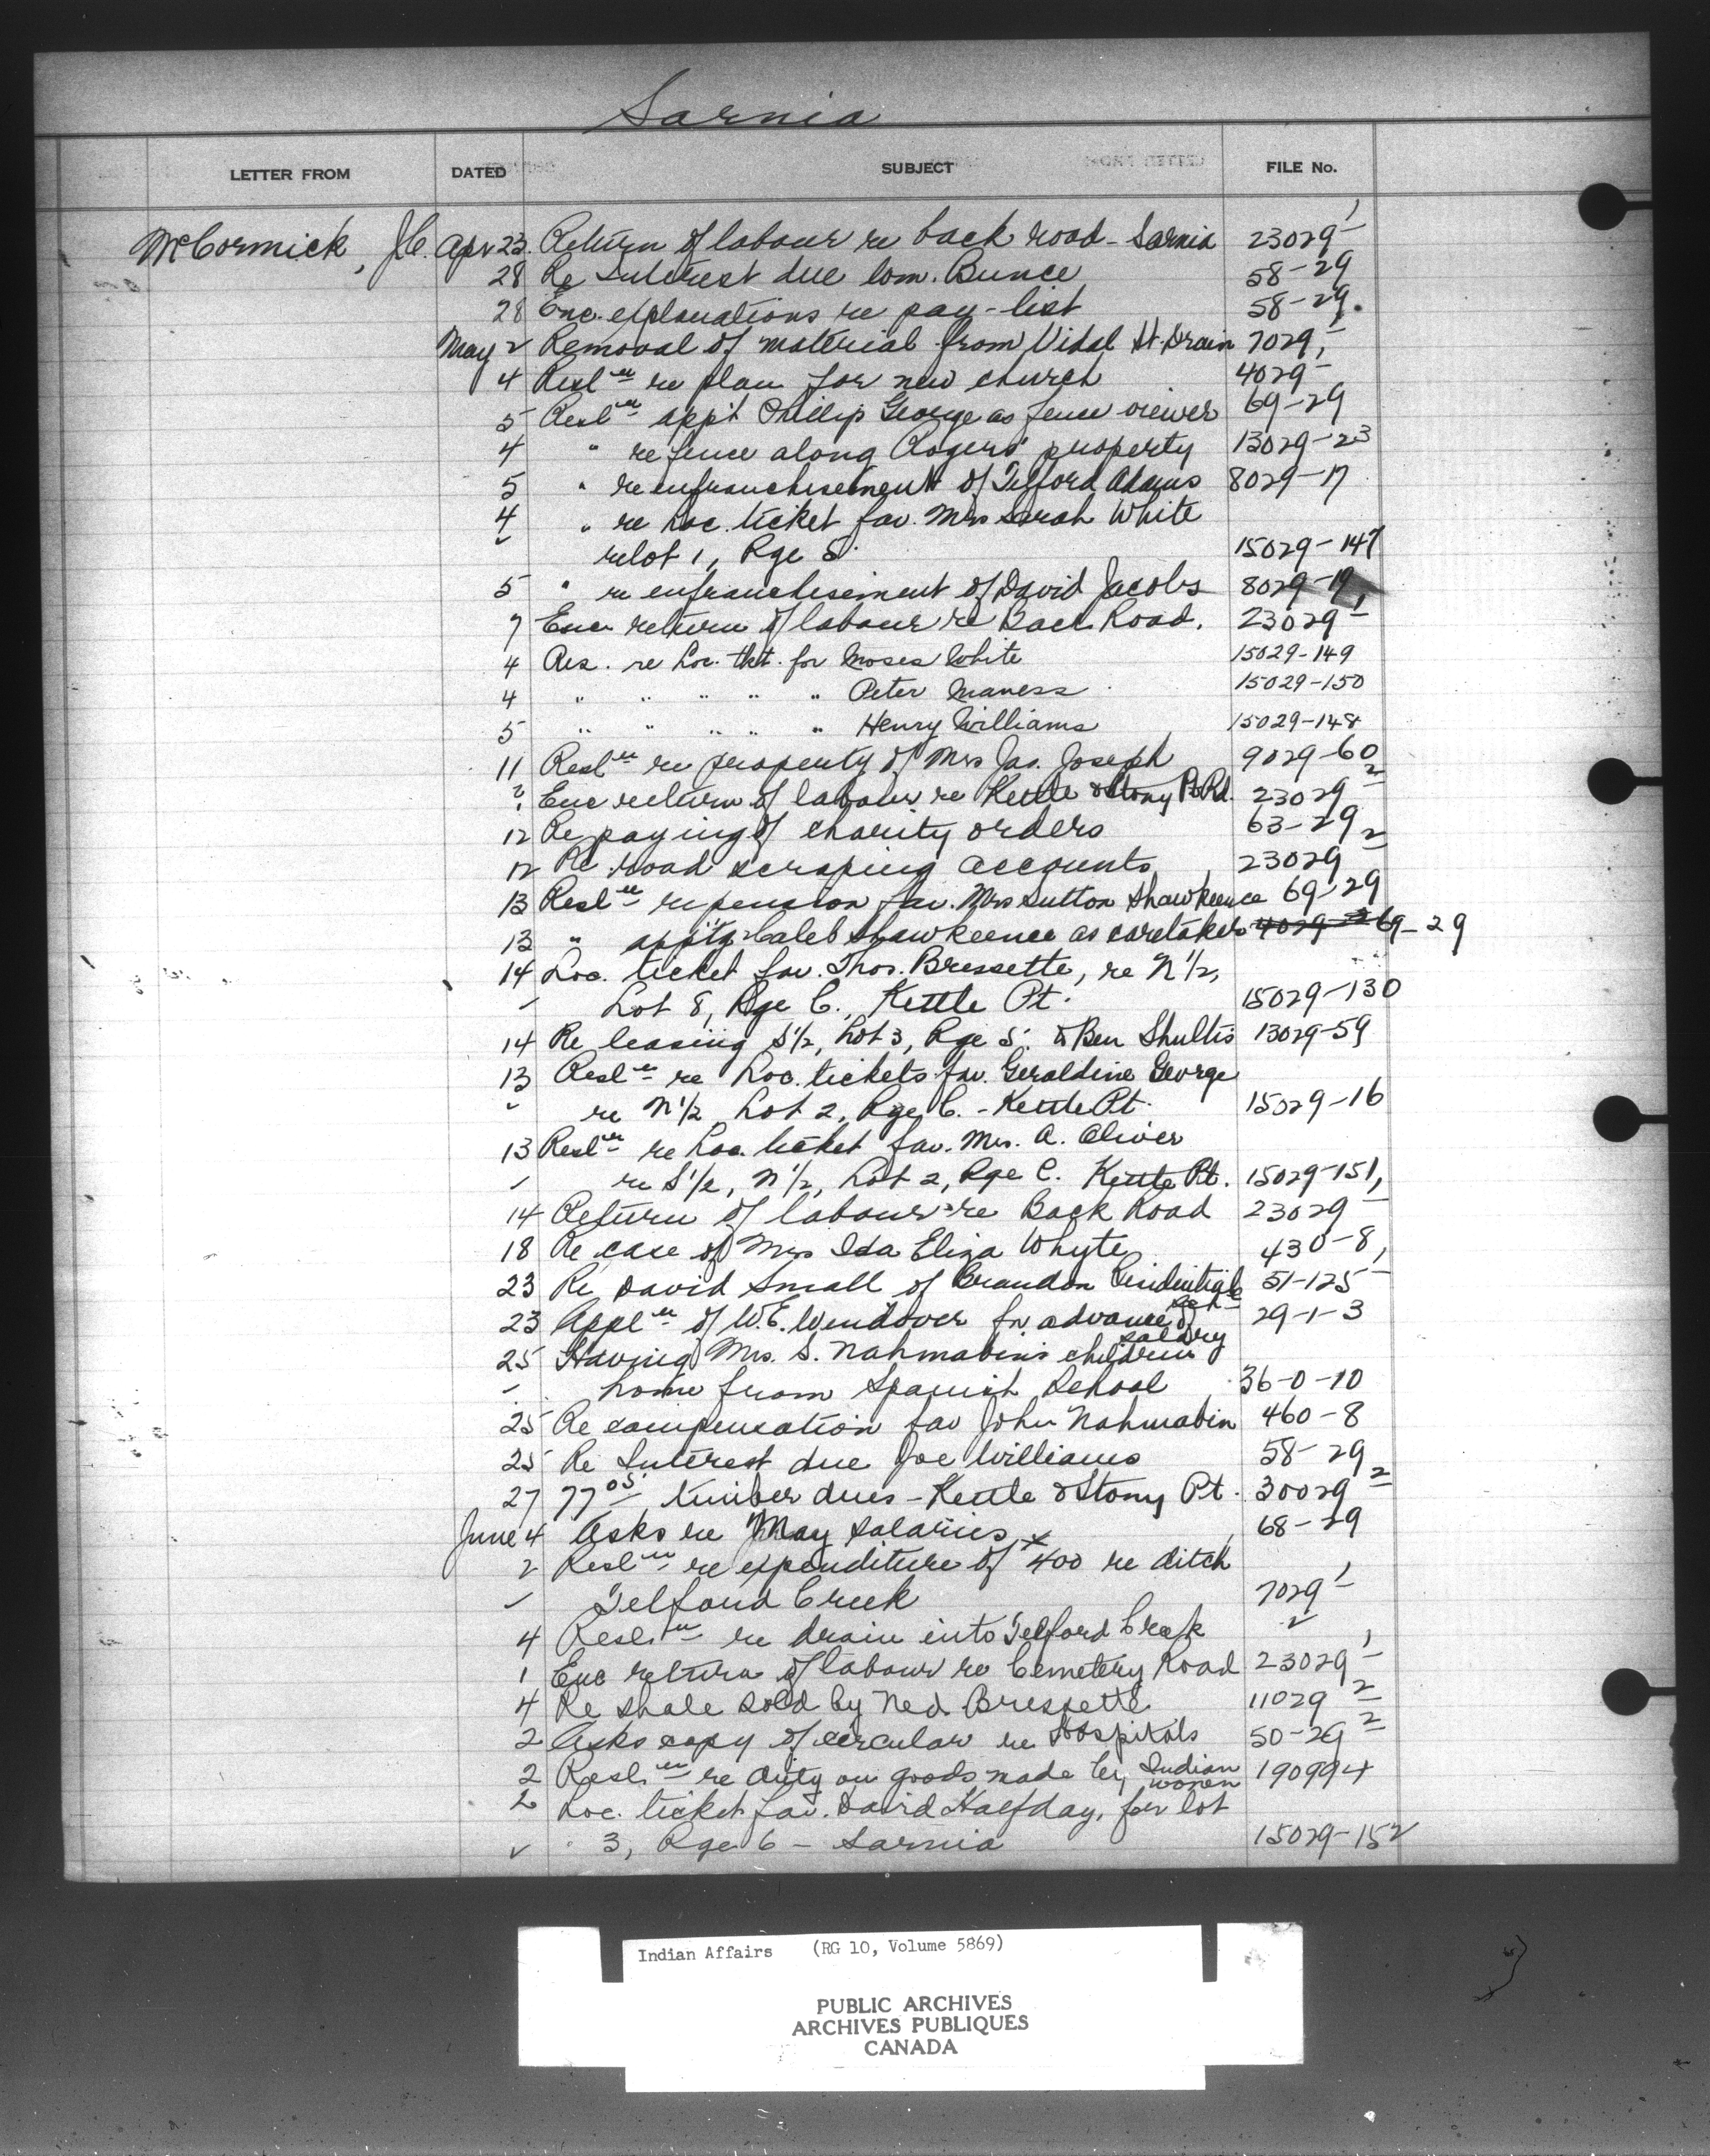 Sarnia
LETTER FROM DATED SUBJECT FILE No.
McCormick, J.C. Apr 23. Return of labour re back road - Sarnia 23029-1
28 Re Interest due Wm. Bunce 58-29
28 Enc. explanations re pay-list 58-29.
May 2 Removal of material from Vidal St. Drain 7029-1
4 Resl'n re plan for new church 4029-
5 Resl'n app't Phillip George as fence viewer 69-29
4 " re fence along Rogers' property 13029-23
5 " re enfranchisement of Telford Adams 8029-17
4 " re Loc. ticket fav. Mrs Sarah White
re lot 1, Rge 5. 15029-147
5 " re enfranchisement of David Jacobs 8029-19
7 Enc return of labour re Back Road. 23029-1
4 Res. re Loc. tkt. for Moses White 15029-149
4 " " " " " Peter Maness 15029-150
5 " " " " " Henry Williams 15029-148
11 Resl'n re property of Mrs Jas. Joseph 9029-60
? Enc return of labour re Kettle & Stony Pt Rd. 23029-2
12 Re paying of charity orders 63-29
12 Re road scraping accounts 23029-2
13 Resl'n re pension fav. Mrs Sutton Shawkeence 69-29
13 " app'tg Caleb Shawkeence as caretaker 4029-2 69-29
14 Loc. ticket fav. Thos. Bressette, re N½,
Lot 8, Rge C., Kettle Pt. 15029-130
14 Re leasing S½, Lot 3, Rge 5. to Ben Shultis 13029-59
13 Resl'n re Loc. tickets fav. Geraldine George
re N½ Lot 2, Rge C. - Kettle Pt. 15029-16
13 Resl'n re Loc. ticket fav. Mrs. A. Oliver
re S½, N½, Lot 2, Rge C. Kettle Pt. 15029-151
14 Return of labour re Back Road 23029-1
18 Re case of Mrs Ida Eliza Whyte 430-8
23 Re David Small of Brandon Residential Sch. 51-125-1
23 Appl'n of W.E. Wendover for advance of salary 29-1-3
25 Having Mrs. S. Nahmabin's children
home from Spanish School 36-0-10
25 Re compensation fav John Nahmabin 460-8
25 Re Interest due Joe Williams 58-29
27 77.05 timber dues - Kettle & Stony Pt. 30029-2
June 4 Asks re May salaries 68-29
2 Resl'n re expenditure of $400 re ditch
Telford Creek 7029-1
4 Resl'n re drain into Telford Creek "
1 Enc return of labour re Cemetery Road 23029-1
4 Re shale sold by Ned Bressette 11029-2
2 Asks copy of circular re Hospitals 50-29-2
2 Resl'n re duty on goods made by Indian women 190994
2 Loc. ticket fav. David Halfday, for lot
3, Rge 6 - Sarnia 15029-152
Indian Affairs (RG 10, Volume 5869)
PUBLIC ARCHIVES
ARCHIVES PUBLIQUES
CANADA